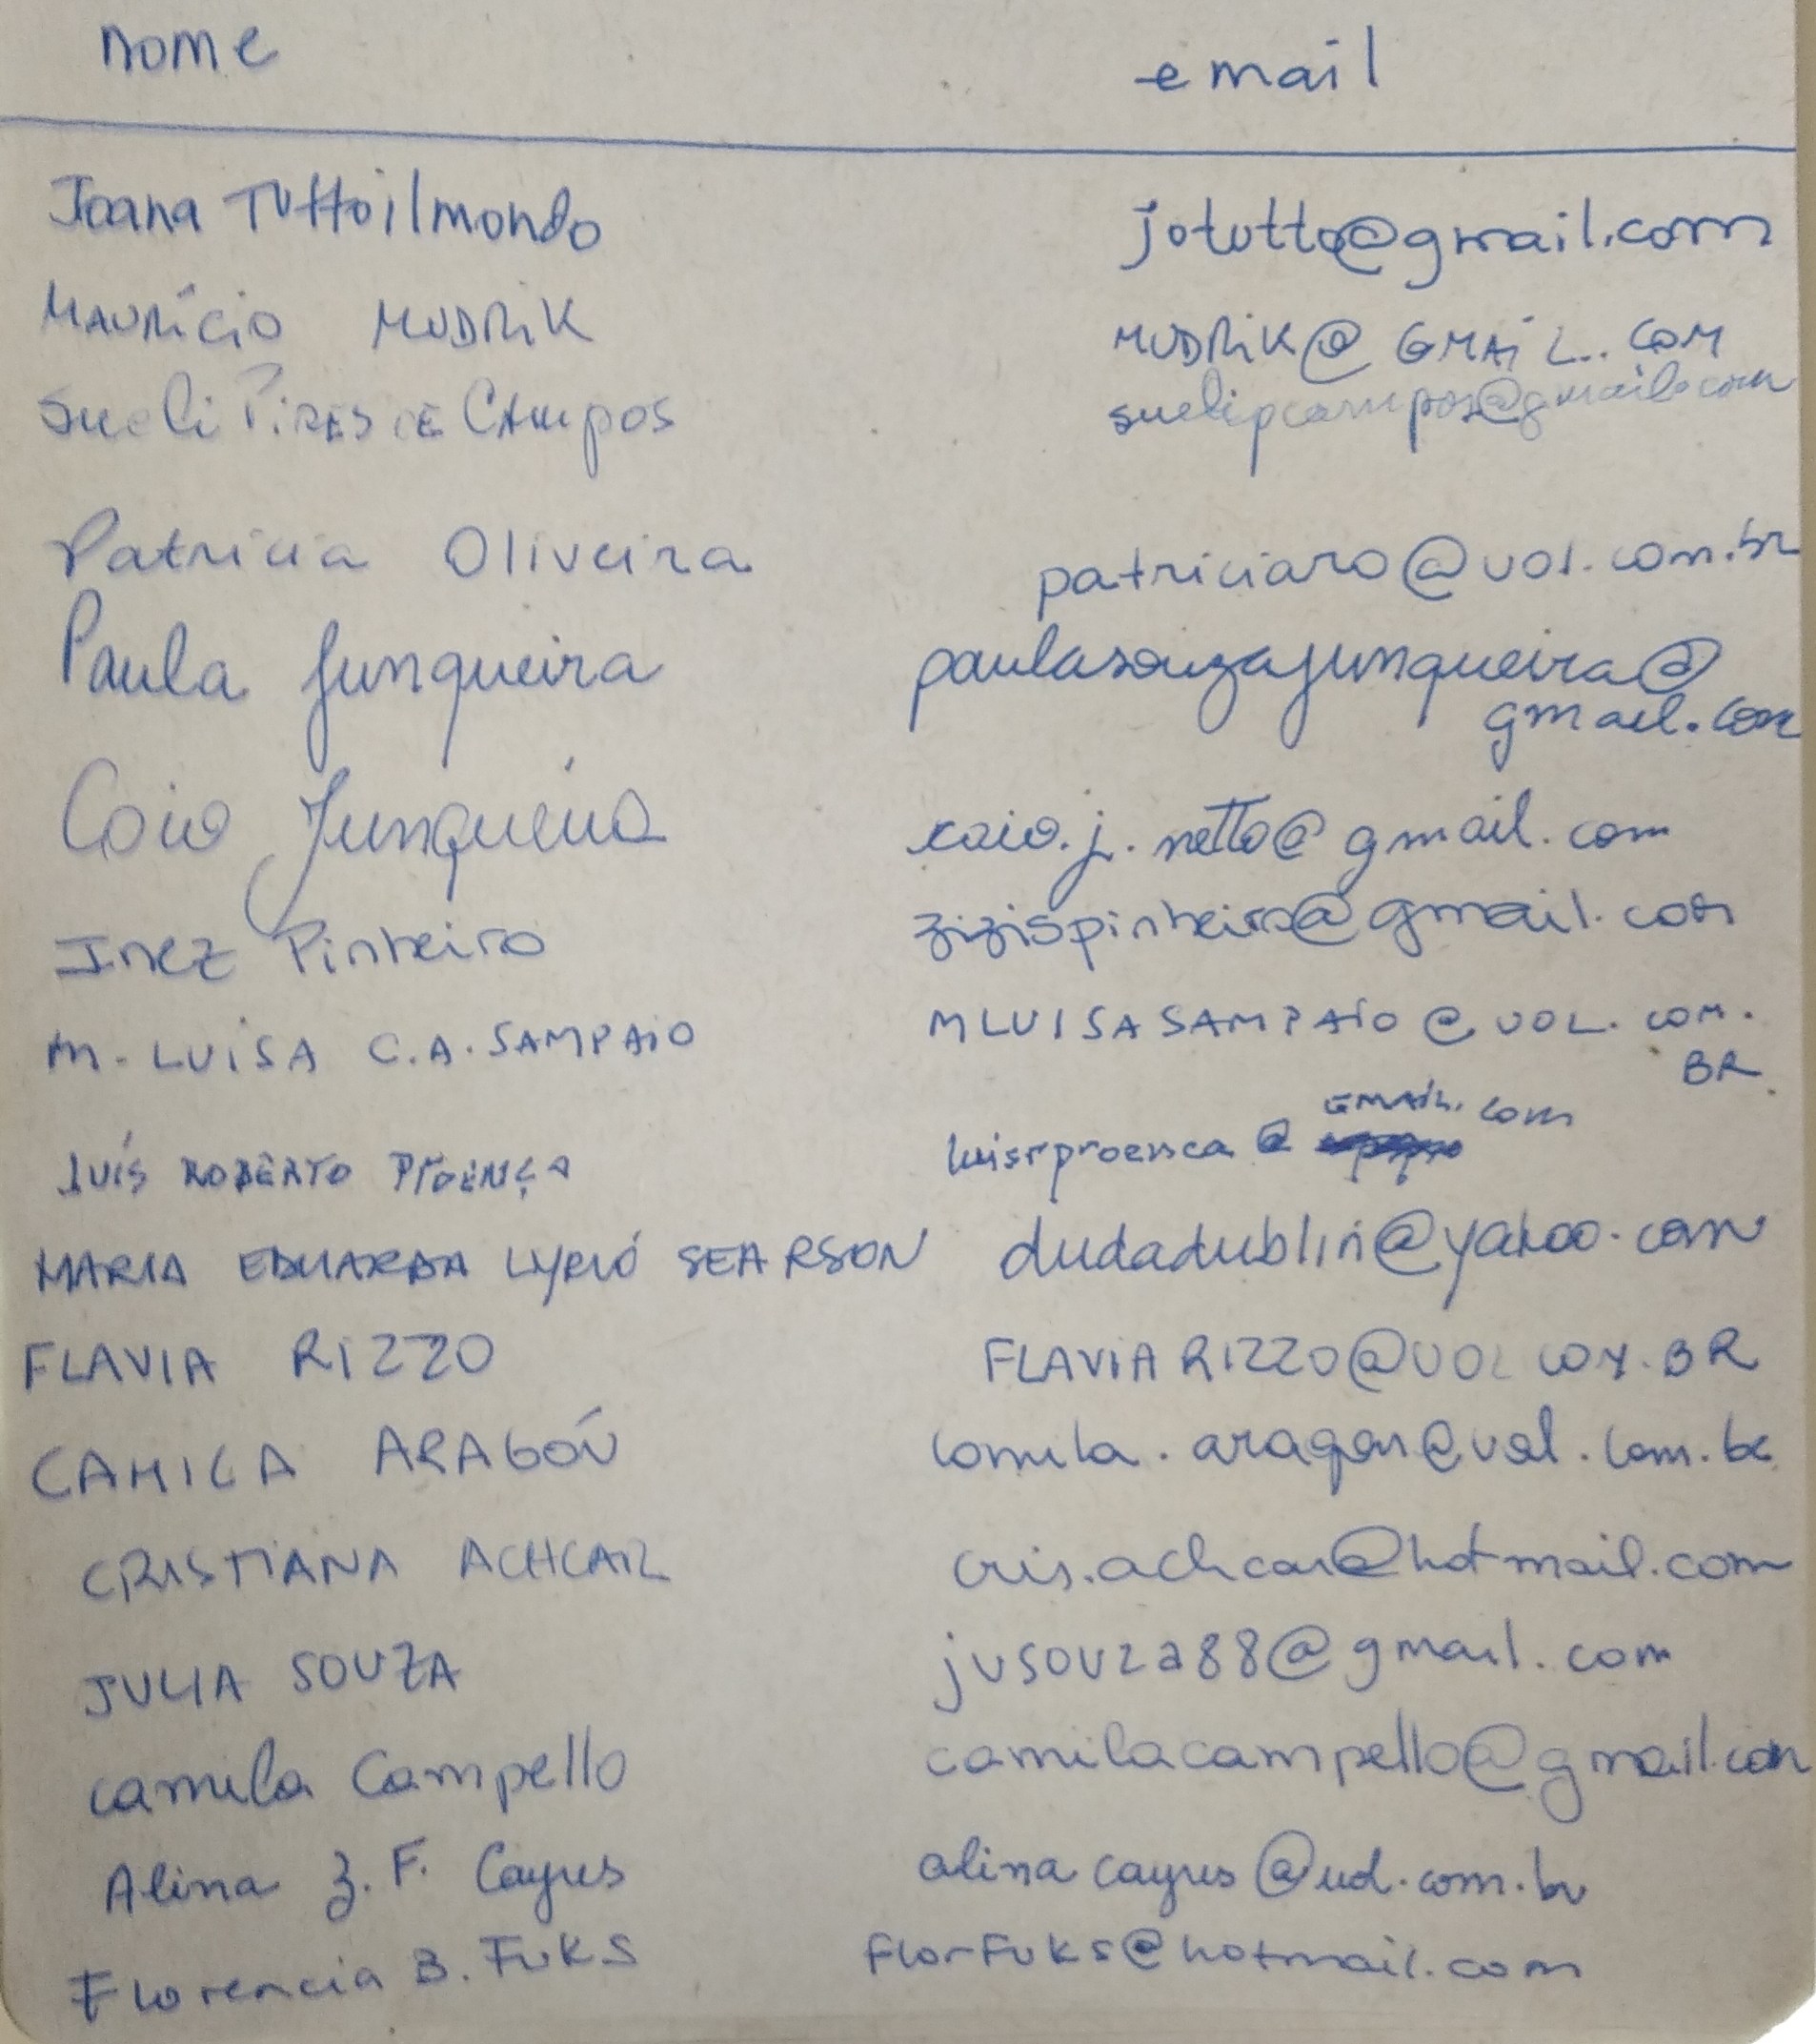 nome email
Joana Tuttoilmondo jotutto@gmail.com
MAURÍCIO MUDRIK MUDRIK@GMAIL.COM
Sueli PIRES DE CAMPOS suelipcampos@gmail.com
Patricia Oliveira patriciaro@uol.com.br
Paula Junqueira paulasouzajunqueira@
gmail.com
Caio Junqueira caio.j.netto@gmail.com
Inez Pinheiro zizispinheiro@gmail.com
M. LUISA C.A. SAMPAIO MLUISASAMPAIO@UOL.COM.
BR
GMAIL.com
LUÍS ROBERTO PROENÇA luisrproenca@
MARIA EDUARDA LYRIÓ SEARSON dudadublin@yahoo.com
FLAVIA RIZZO FLAVIARIZZO@UOL COM.BR
CAMILA ARAGÓN camila.aragon@uol.com.br
CRISTIANA ACHCAR cris.achcar@hotmail.com
JULIA SOUZA jusouza88@gmail.com
camila Campello camilacampello@gmail.com
Alina Z. F. Cayres alinacayres@uol.com.br
Florencia B. Fuks Florfuks@hotmail.com